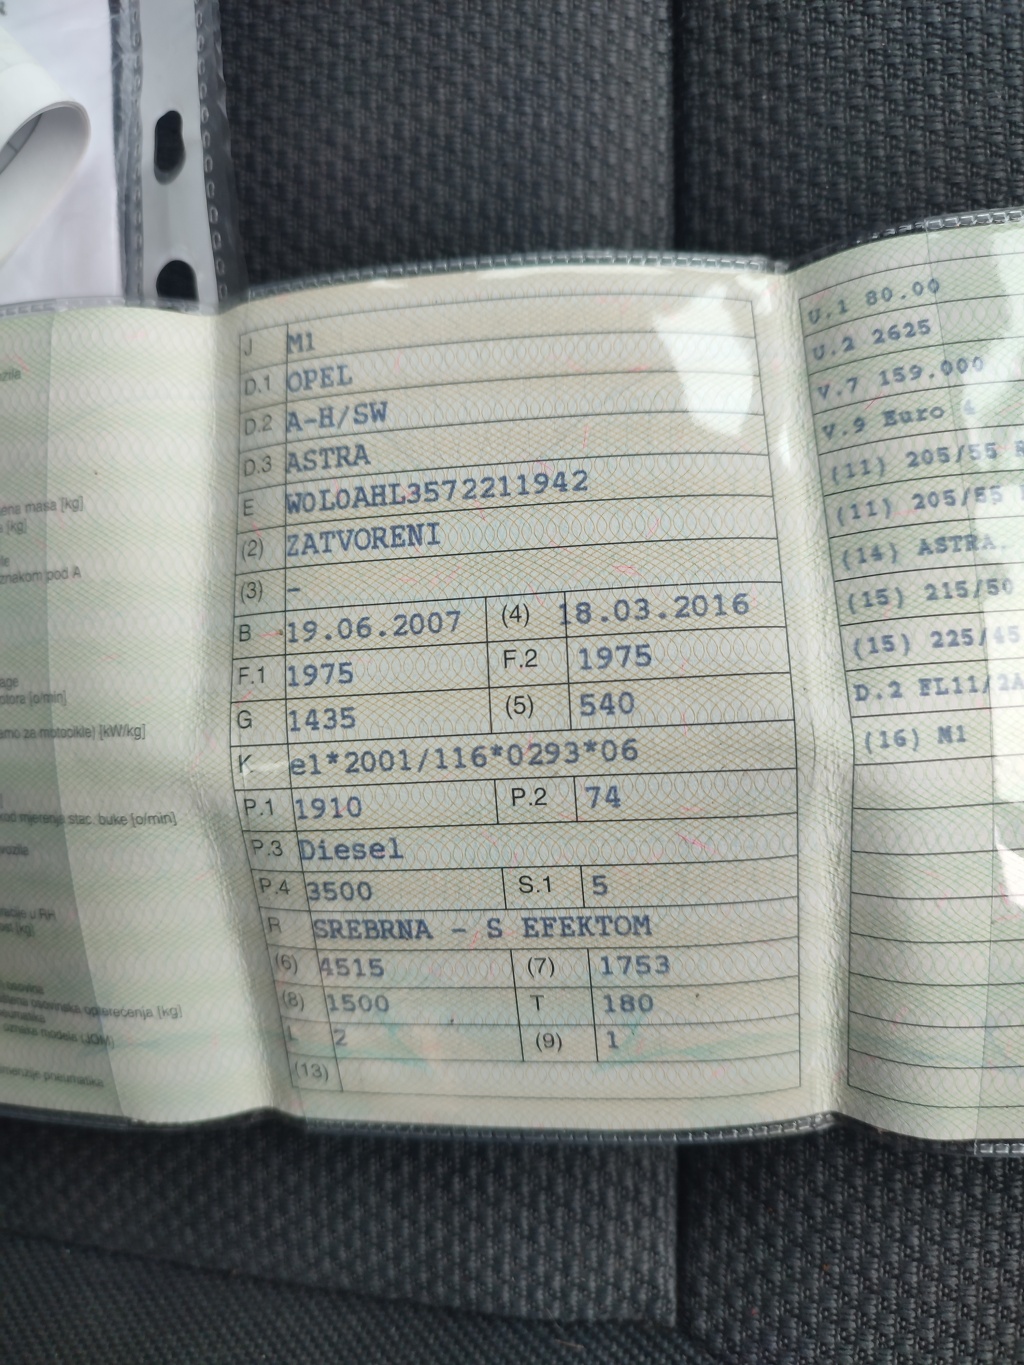 ena masa [kg]
[kg]
znakom pod A
age
otora [o/min]
amo za motocikle) [kW/kg]
kod mjerenja stac. buke [o/min]
J M1
D.1 OPEL
D.2 A-H/SW
D.3 ASTRA
E W0L0AHL3572211942
(2) ZATVORENI
(3) -
B 19.06.2007 (4) 18.03.2016
F.1 1975 F.2 1975
G 1435 (5) 540
K e1*2001/116*0293*06
P.1 1910 P.2 74
P.3 Diesel
P.4 3500 S.1 5
R SREBRNA - S EFEKTOM
(6) 4515 (7) 1753
(8) 1500 T 180
L 2 (9) 1
(13)
U.1 80.00
U.2 2625
V.7 159.000
V.9 Euro 4
(11) 205/55 R
(11) 205/55
(14) ASTRA.
(15) 215/50
(15) 225/45
D.2 FL11/2A
(16) M1